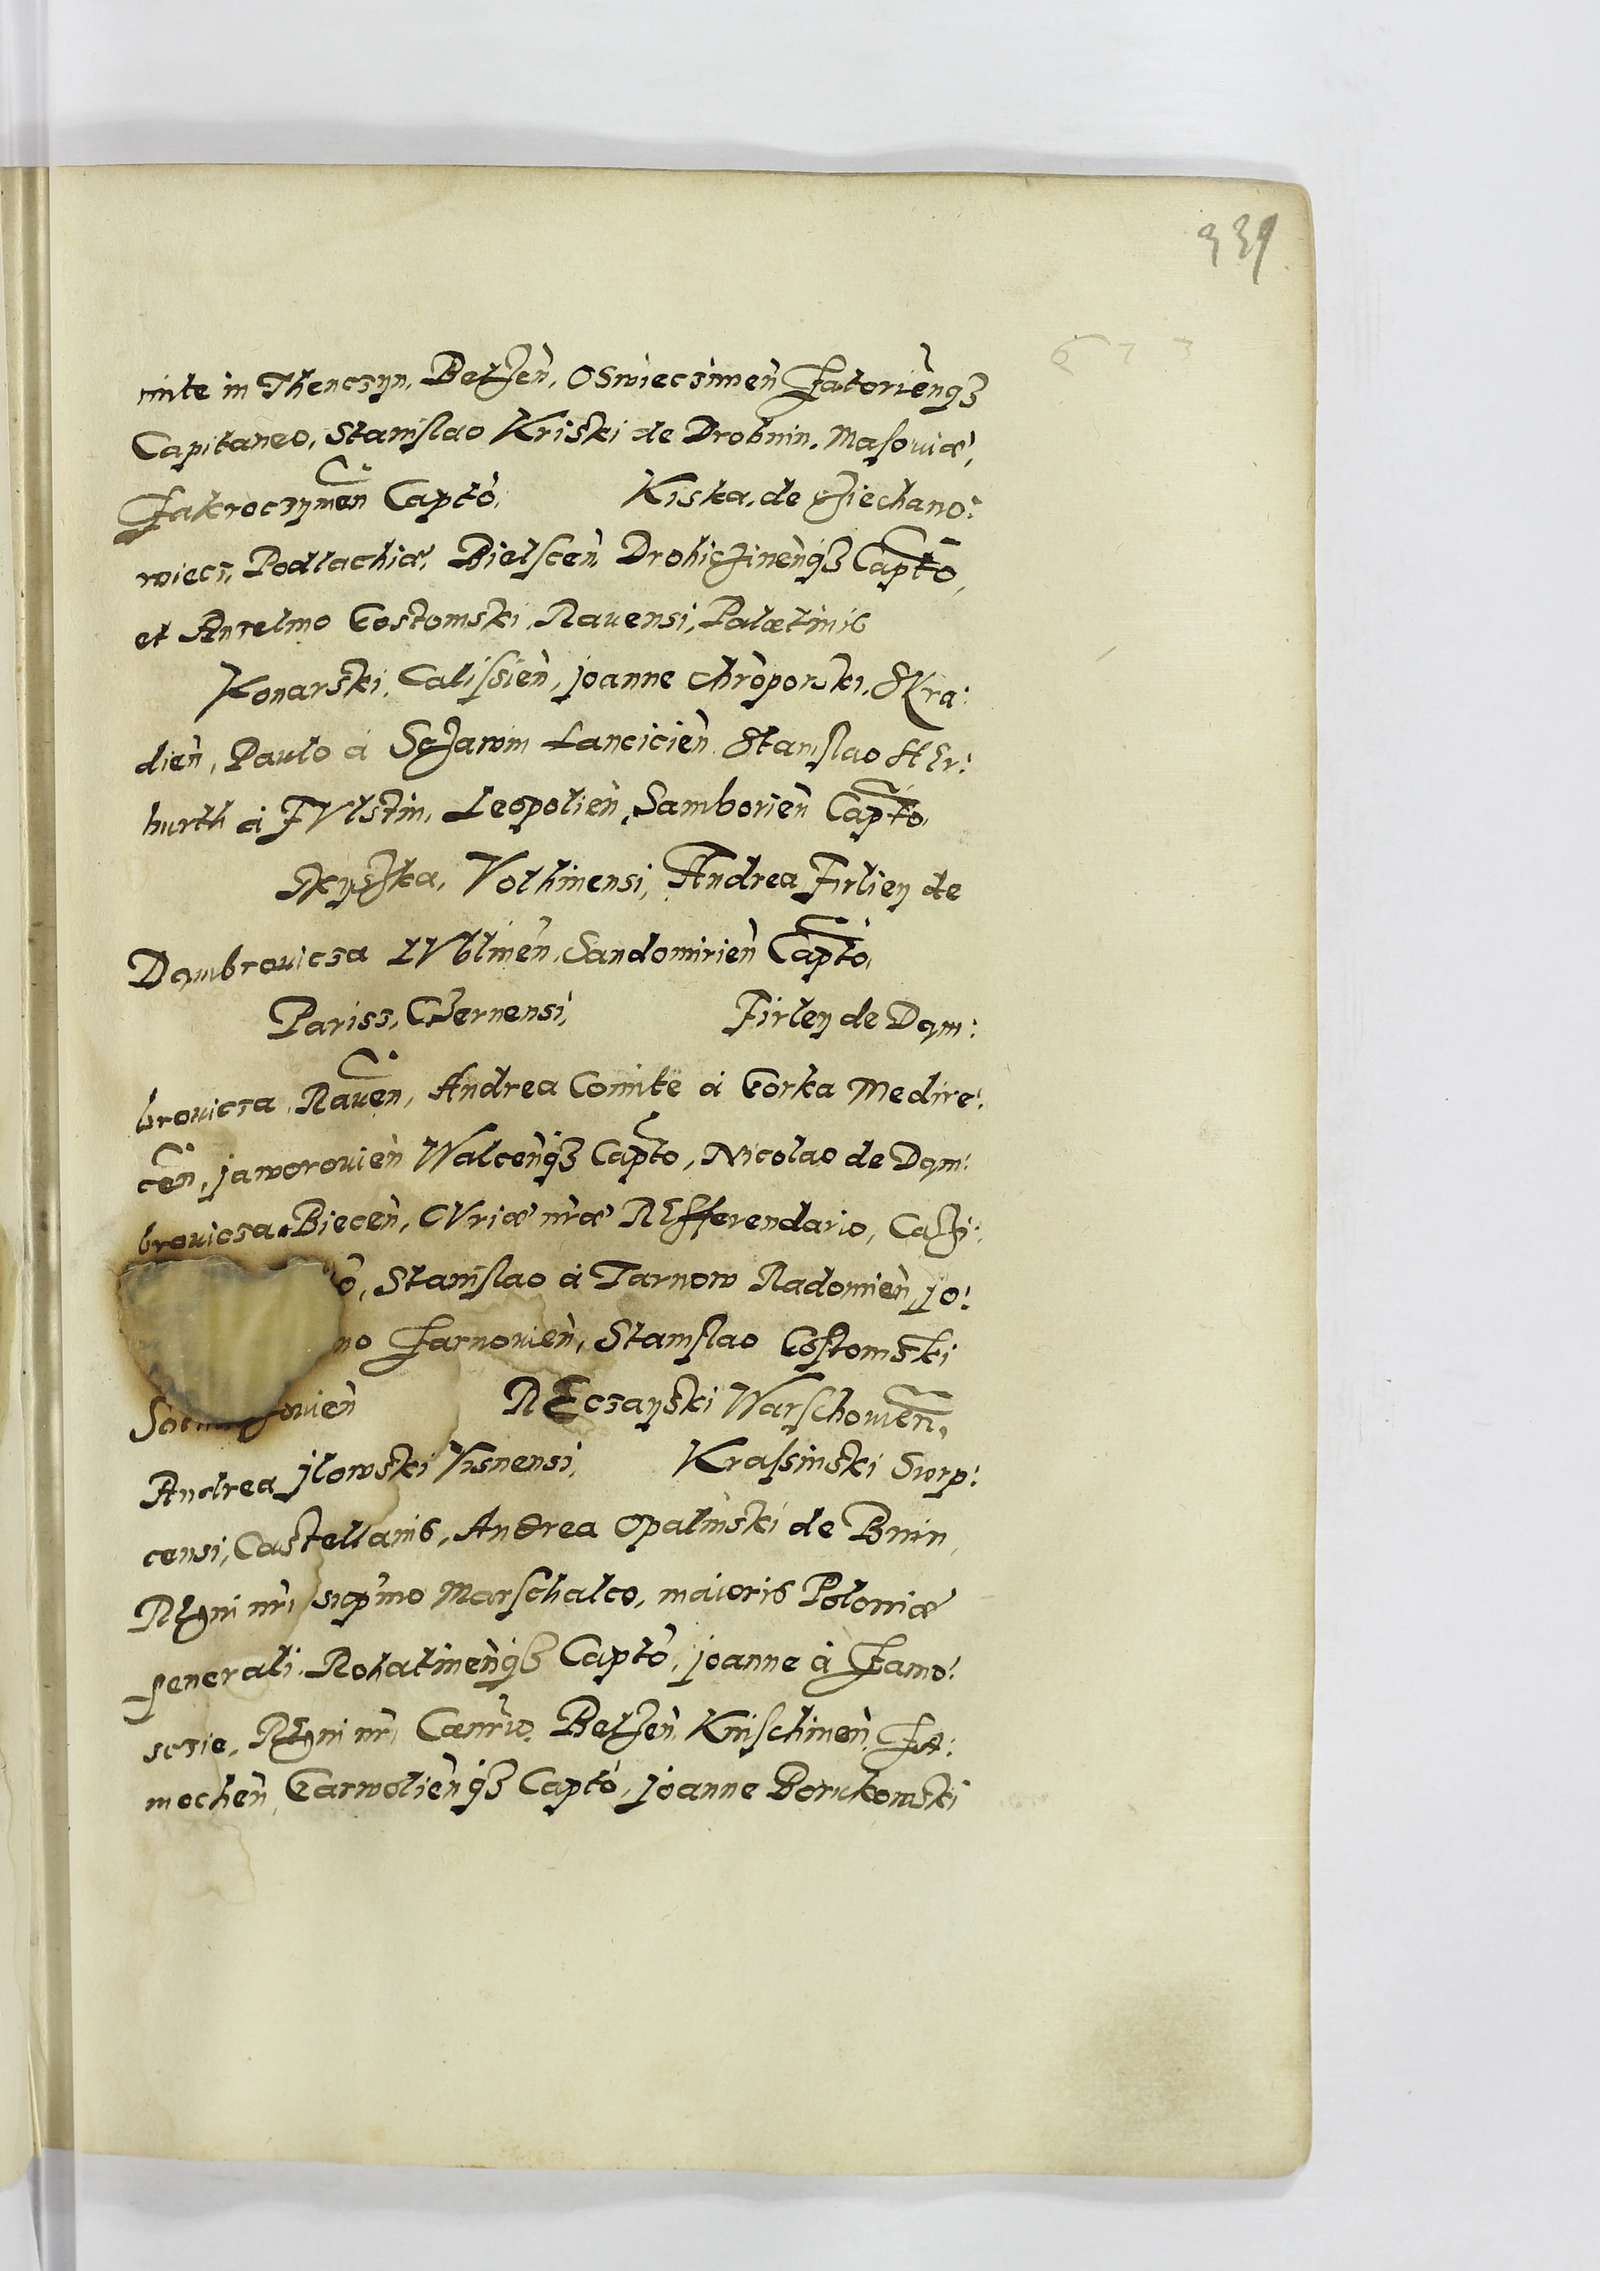 339
673
mite in Thenczyn, Belzen̄, Oswieczimen̄ Zatorien̄qȝ
Capitaneo, Stanislao Kriski de Drobnin. Masouiæ,
Zakroczymen̄ Captō, Kiska, de Ciechano:
wiecz, Podlachiæ, Bielscen̄ Drohiczinen̄qȝ Captō,
et Anselmo Gostomski, Rauensi, Palatinis
Konarski, Calissien̄, joanne Chroporski, Sira:
dien̄, Paulo á Sczawin Lancicien̄ Stanislao HEr:
burth á FVlstin, Leopolien̄, Samborien̄ Captō,
Volhinensi, Andrea Firliey de
Dambrouicza LVblinen̄, Sandomirien̄ Captō,
Parisz, Czernensi, Firley de Dąm:
brouicza, Rauen̄, Andrea Comite á Gorka Medire:
cen̄, jaworouien̄ Walcen̄qȝ Captō, Nicolao de Dąm:
brouicza Biecen̄, CVriæ nr̄æ REfferendario, Cazi:
ō, Stanislao á Tarnow Radomien̄, jo:
no Zarnouien̄, Stanislao Gostomski
ouien̄ REczayski Warschouien̄,
Andrea jlowski Visnensi, Krassinski Sierp:
censi, Castellanis, Andrea Opalinski de Bnin,
REgni nr̄i supmo Marschalco, maioris Poloniæ
generali, Rohatinen̄qȝ Captō, joanne á Zamo:
sczie, REgni nr̄i Cancr̄io, Belzen̄ Knischinen̄ ZA:
mechen̄, Garwolien̄qȝ Captō, joanne Borukowski